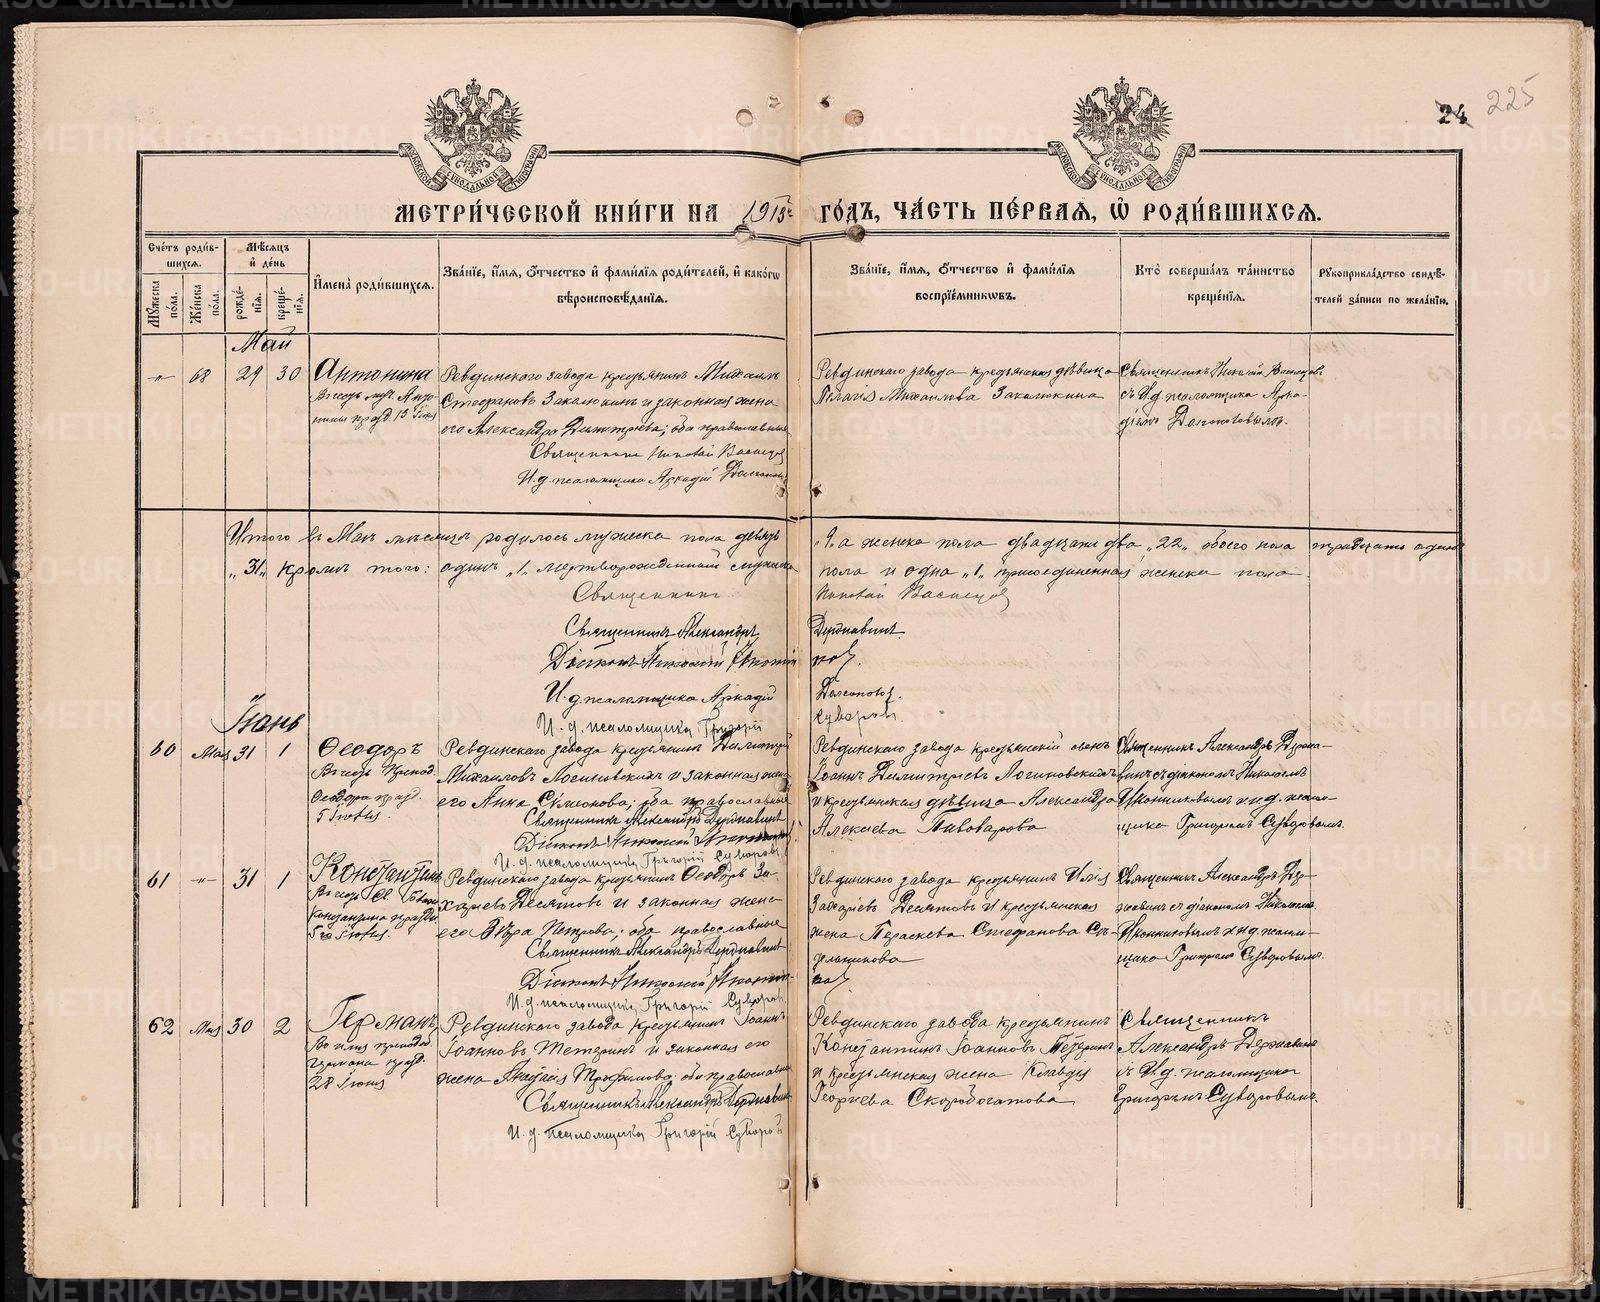 24 225
МЕТРИ́ЧЕСКОЙ КНИ́ГИ НА 1913 г. ГО́ДЪ, ЧА́СТЬ ПЕ́РВАЯ, Ѽ РОДИ́ВШИХСЯ.
Сче́тъ роди́в-
шихся.
Мѣ́сяцъ
и҆ де́нь
Мꙋ́жеска по́ла.
Же́нска по́ла.
рожде́-
нїѧ.
креще́-
нїѧ.
И҆мена̀ роди́вшихся.
Зва́нїе, и҆́мѧ, ѻ҆́тчество и҆ фами́лїѧ роди́телей, и҆ како́гѡ
вѣроисповѣ́данїѧ.
Зва́нїе, и҆́мѧ, ѻ҆́тчество и҆ фами́лїѧ
воспрїе́мникѡвъ.
Кто̀ соверша́лъ та́инство
креще́нїѧ.
Рꙋкоприкла́дство свидѣ́-
телей за́писи по жела́нїю.
Май
-"- 68 29 30
Антонина
Ревдинскаго завода крестьянинъ Михаилъ
Стефановъ Закалюкинъ и законная жена
его Александра Димитріева; оба православные
Священникъ Николай Васнецов
И.д. псаломщика Аркадій
Ревдинскаго завода крестьянская дѣвица
Михаилова Закалюкина
Священникъ Николай Васнецовъ
съ И.д. псаломщика Арка-
діемъ
Итого въ Маѣ мѣсяцѣ родилось мужеска пола девять „9„ а женска пола двадцать два „22„ обоего пола тридцать одинъ
„31„ кромѣ того: одинъ „1„ мертворожденный мужска пола и одна „1„ присоединенная женска пола.
Священникъ Николай Васнецов
Священникъ Александръ Державинъ
Діаконъ Николай Иконников.
И.д. псаломщика Аркадій
И. д. псаломщика Григорій Суворовъ
Іюнь
60 Мая 31 1
Ѳеодоръ
Въ честь Препод.
Ѳеодора празд.
5 Іюня.
Ревдинскаго завода крестьянинъ Димитрій
Михаиловъ Логиновскихъ и законная жена
его Анна Симеонова; оба православные
Священникъ Александръ Державинъ
Діаконъ Николай Иконников
И. д. псаломщика Григорій Суворовъ
Ревдинскаго завода крестьянскій сынъ
Іоаннъ Димитріевъ Логиновскихъ
и крестьянская дѣвица Александра
Алексіева Пивоварова
Священникъ Александръ Держа-
винъ съ діакономъ Николаемъ
Иконниковымъ и и.д. псало-
мщика Григоріемъ Суворовымъ.
61 -"- 31 1
Константинъ
Ревдинскаго завода крестьянинъ Ѳеодоръ За-
харіевъ Десятовъ и законная жена
его Вѣра Петрова; оба православные
Священникъ Александръ Державинъ
Діаконъ Николай Иконников
И.д. псаломщика Григорій Суворовъ
Ревдинскаго завода крестьянинъ Илія
Захаріевъ Десятовъ и крестьянская
жена Параскева Стефанова
Священникъ Александръ Дер-
жавинъ съ діакономъ Николаемъ
Иконниковымъ и и.д. псалом-
щика Григоріемъ Суворовымъ.
62 Мая 30 2
Германъ
Во имя преподоб.
Германа празд.
28 Іюня
Ревдинскаго завода крестьянинъ Іоаннъ
Іоанновъ Тетеринъ и законная его
жена Анастасія Трофимова; оба православные
Священникъ Александръ Державинъ
И. д. псаломщика Григорій Суворовъ
Ревдинскаго завода крестьянинъ
Константинъ Іоанновъ Тетеринъ
и крестьянская жена Клавдія
Георгіева Скоробогатова
Священникъ
Александръ Державинъ
съ И.д. псаломщика
Григоріемъ Суворовымъ.
METRIKI.GASO-URAL.RU